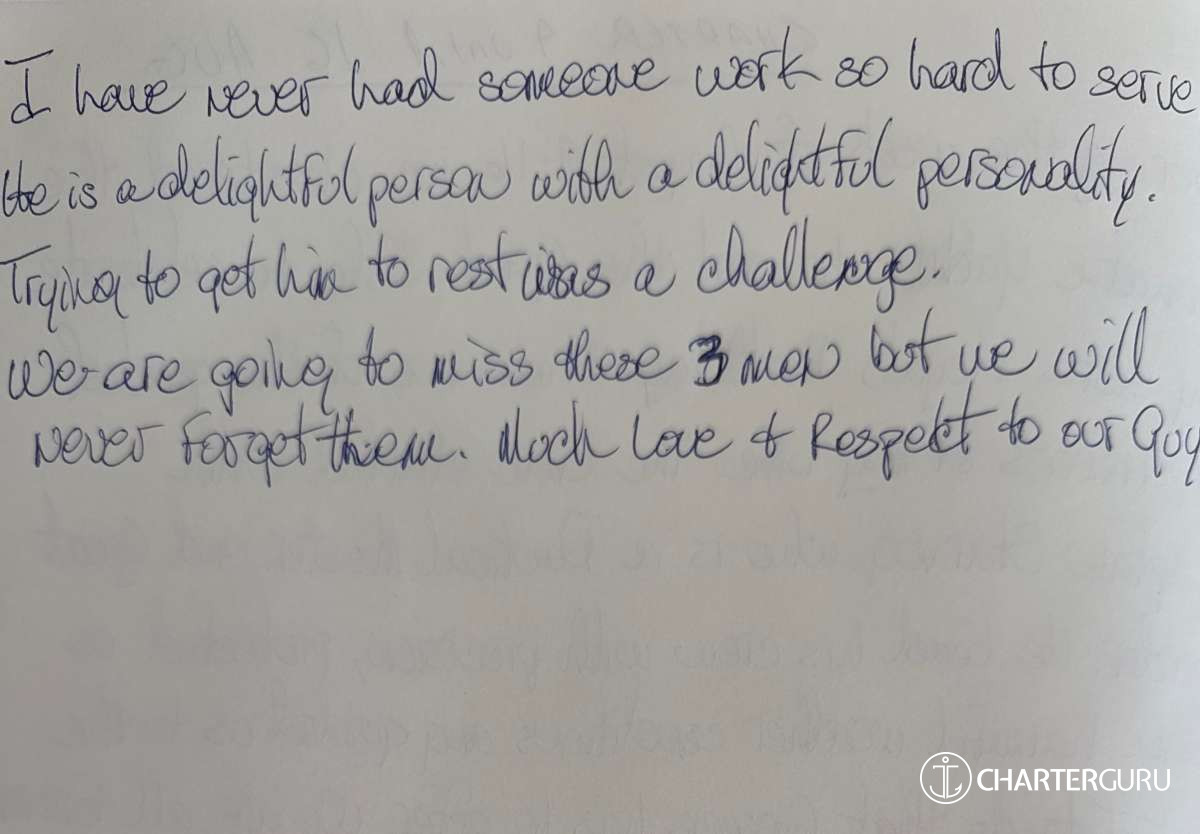 I have never had someone work so hard to serve
He is a delightful person with a delightful personality.
Trying to get him to rest was a challenge.
We are going to miss these 3 men but we will
never forget them. Much Love & Respect to our Guy
CHARTERGURU